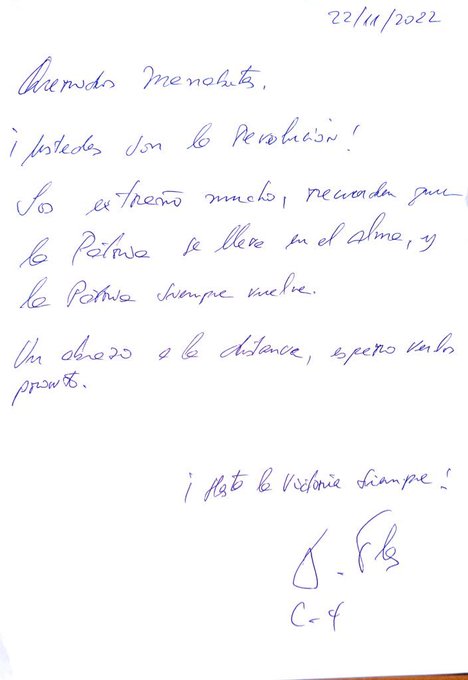 22/11/2022
Queridos Manabitas,
¡Ustedes son la Revolución!
Los extraño mucho, recuerden que
la Patria se lleva en el alma, y
la Patria siempre vuelve.
Un abrazo a la distancia, espero verlos
pronto.
¡Hasta la Victoria Siempre!
C-4